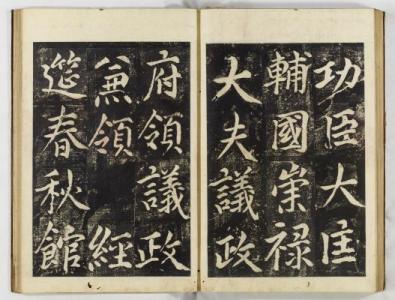 功臣大匡
輔國崇禄
大夫議政
府領議政
兼領 經
筵春秋館